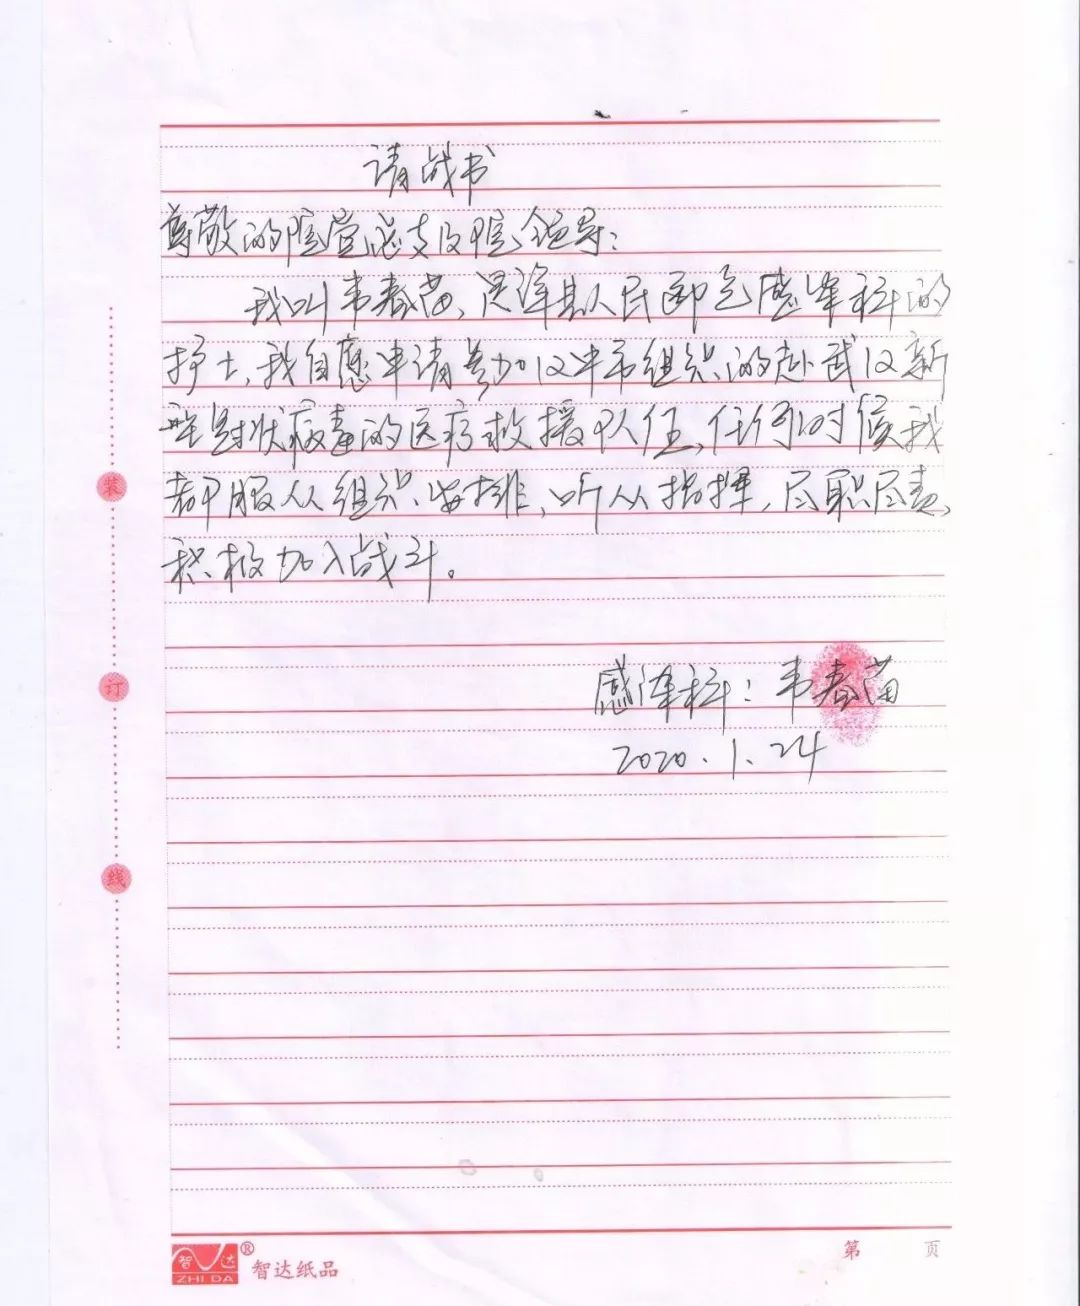 请战书
尊敬的院党总支及院领导:
我叫韦春苗,是洋县人民医院感染科的
护士,我自愿申请参加汉中市组织的赴武汉新
型冠状病毒的医疗救援队伍,任何时候我
都服从组织安排,听从指挥,尽职尽责,
积极加入战斗。
感染科:韦春苗
2020.1.24
装
订
线
智达
ZHI DA
® 智达纸品
第 页